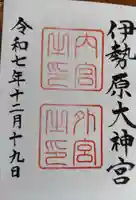 伊勢原大神宮
外宮之印
内宮之印
令和七年十二月十九日